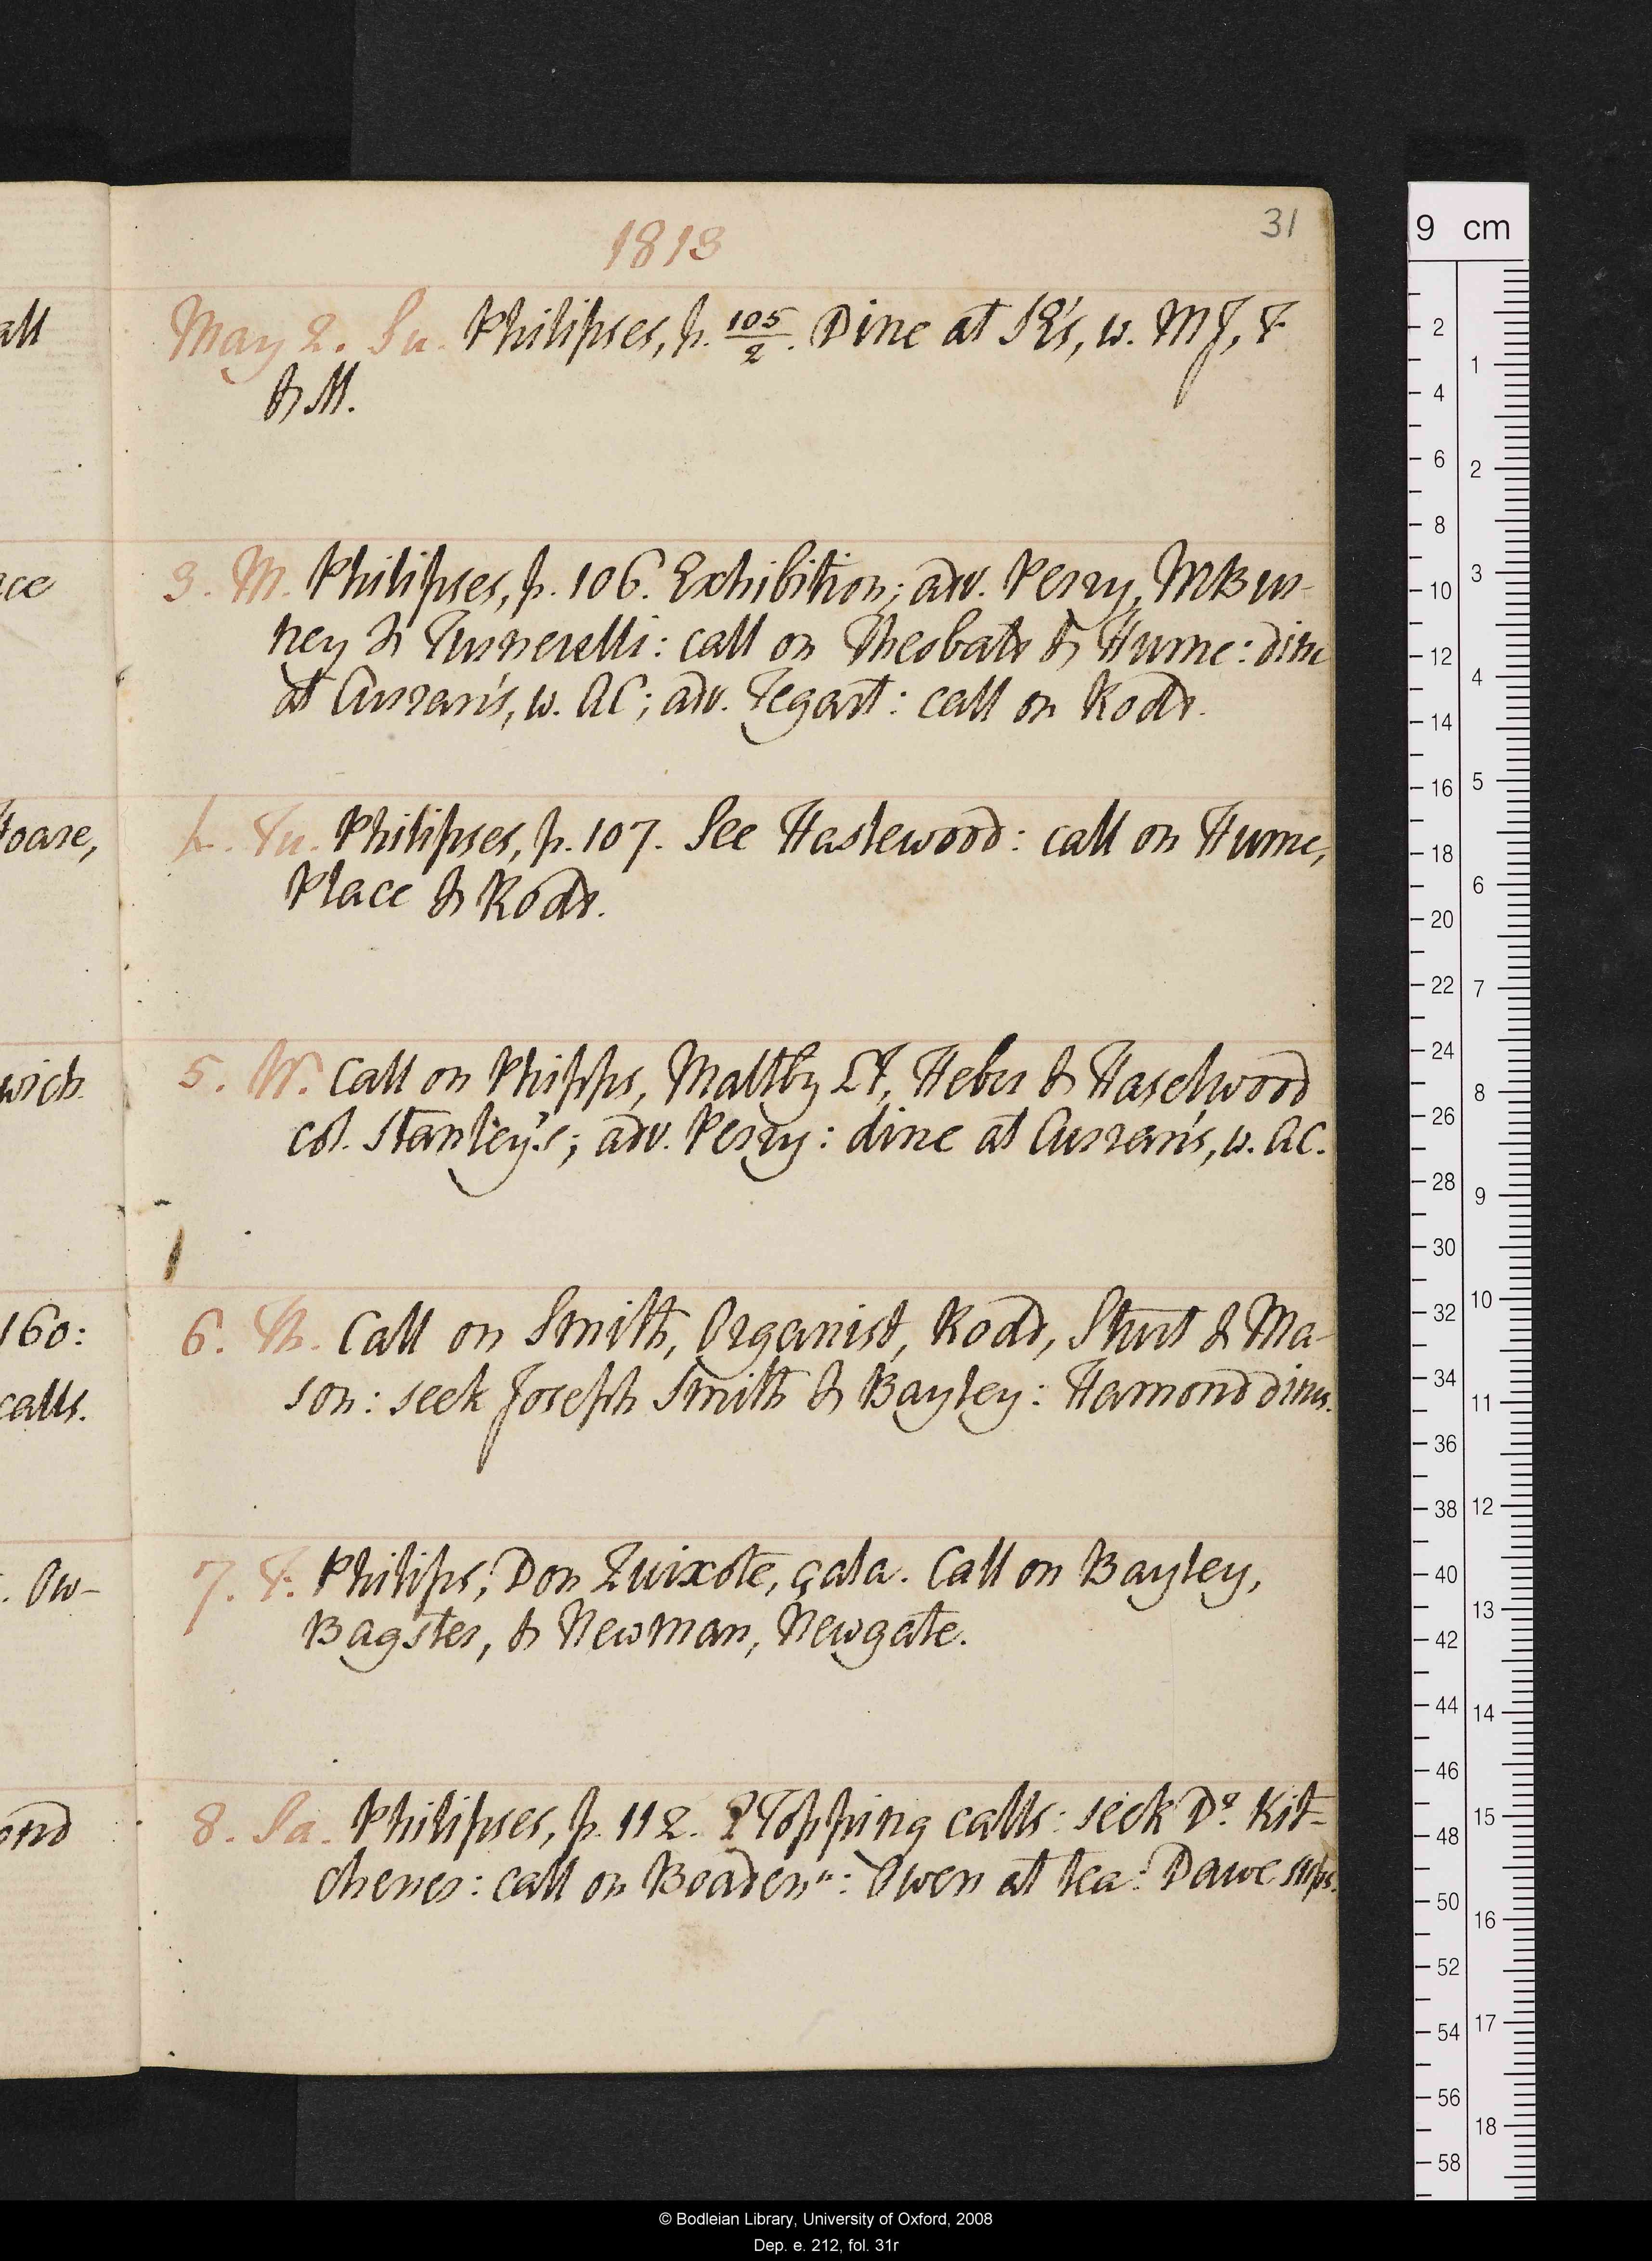 31
1813
May 2. Su. Philipses, p. 105/2. Dine at SE's, w. MJ, F
& M.
3. M. Philipses, p. 106. Exhibition; adv. Perry, MBur-
ney & Turnerelli: call on Theobald & Hume: dine
at Curran's, w. AC; adv. Tegart: call on Rodd.
4. Tu. Philipses, p. 107. See Haslewood: call on Hume,
Place & Rodd.
5. W. Call on Phipps, Maltby LI, Heber & Haselwood
col. Stanley's; adv. Perry: dine at Curran's, w. AC.
6. Th. Call on Smith, Organist, Rodd, Sturt & Ma-
son: seek Joseph Smith & Bayley: Hamond dines.
7. F. Philips, Don Quixote, çala. Call on Bayley,
Bagster, & Newman, Newgate.
8. Sa. Philipses, p. 112. Topping calls: seek Dr. Kit-
chener: call on Boadenn: Owen at tea: Dawe sups.
all
ce
Hoare,
wich
160:
calls.
. Ow-
ond
9 cm
2
4
6
8
10
12
14
16
18
20
22
24
26
28
30
32
34
36
38
40
42
44
46
48
50
52
54
56
58
1
2
3
4
5
6
7
8
9
10
11
12
13
14
15
16
17
18
© Bodleian Library, University of Oxford, 2008
Dep. e. 212, fol. 31r